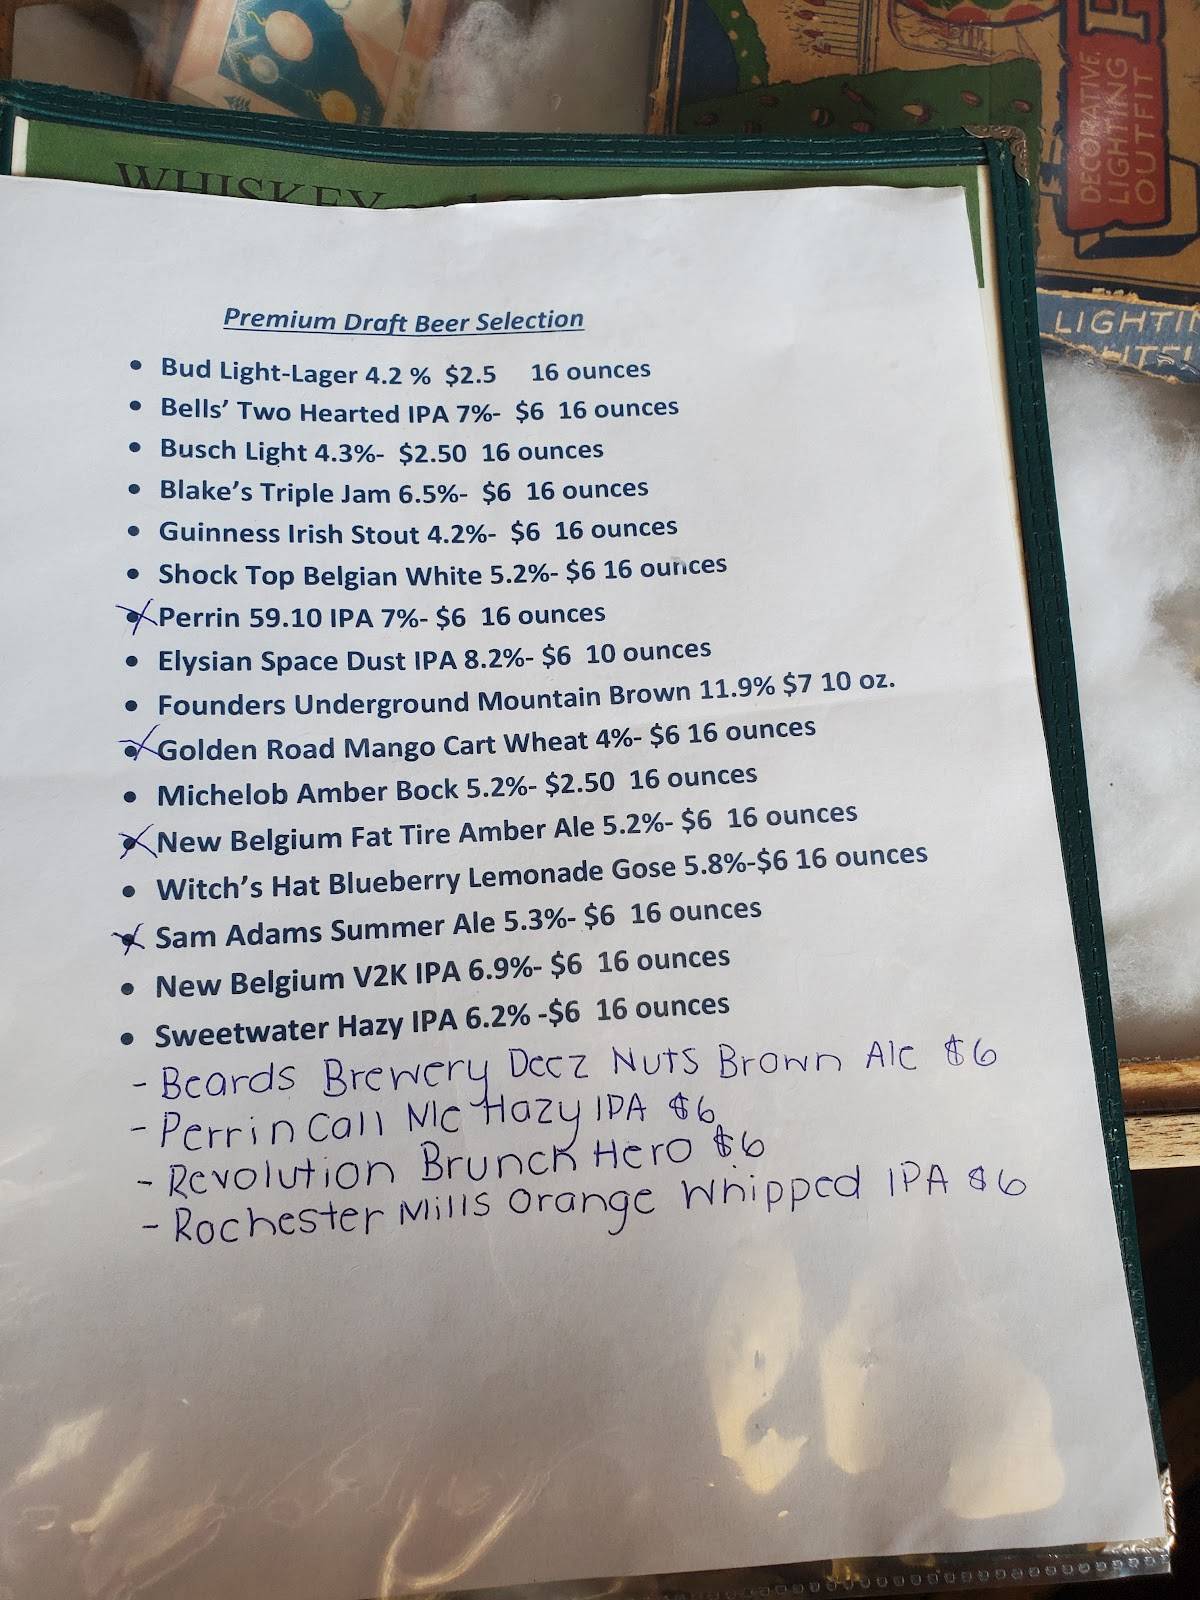 DECORATIVE
LIGHTING
OUTFIT
WHISKEY
LIGHTI
Premium Draft Beer Selection
• Bud Light-Lager 4.2 % $2.5 16 ounces
• Bells’ Two Hearted IPA 7%- $6 16 ounces
• Busch Light 4.3%- $2.50 16 ounces
• Blake’s Triple Jam 6.5%- $6 16 ounces
• Guinness Irish Stout 4.2%- $6 16 ounces
• Shock Top Belgian White 5.2%- $6 16 ounces
• Perrin 59.10 IPA 7%- $6 16 ounces
• Elysian Space Dust IPA 8.2%- $6 10 ounces
• Founders Underground Mountain Brown 11.9% $7 10 oz.
• Golden Road Mango Cart Wheat 4%- $6 16 ounces
• Michelob Amber Bock 5.2%- $2.50 16 ounces
• New Belgium Fat Tire Amber Ale 5.2%- $6 16 ounces
• Witch’s Hat Blueberry Lemonade Gose 5.8%-$6 16 ounces
• Sam Adams Summer Ale 5.3%- $6 16 ounces
• New Belgium V2K IPA 6.9%- $6 16 ounces
• Sweetwater Hazy IPA 6.2% -$6 16 ounces
- Beards Brewery Deez Nuts Brown Ale $6
- Perrin Call Me Hazy IPA $6
- Revolution Brunch Hero $6
- Rochester Mills Orange Whipped IPA $6